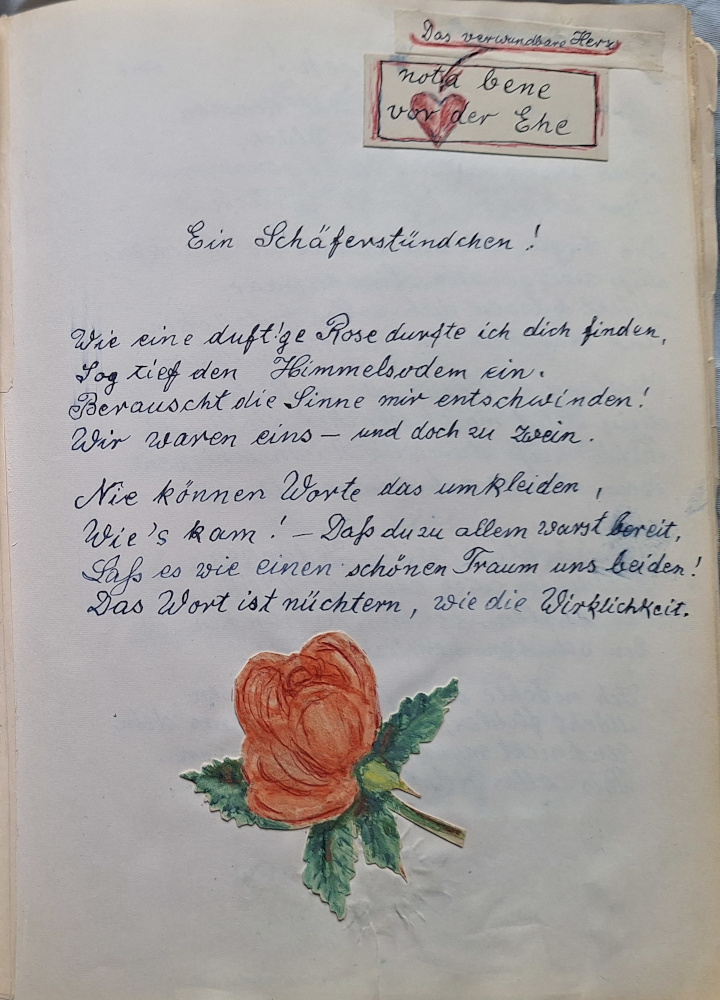 Das verwundbare Herz
nota bene
vor der Ehe
Ein Schäferstündchen!
Wie eine duft'ge Rose durfte ich dich finden,
Sog tief den Himmelsodem ein.
Berauscht die Sinne mir entschwinden!
Wir waren eins – und doch zu zwein.
Nie können Worte das umkleiden,
Wie's kam! – Daß du zu allem warst bereit,
Laß es wie einen schönen Traum uns beiden!
Das Wort ist nüchtern, wie die Wirklichkeit.